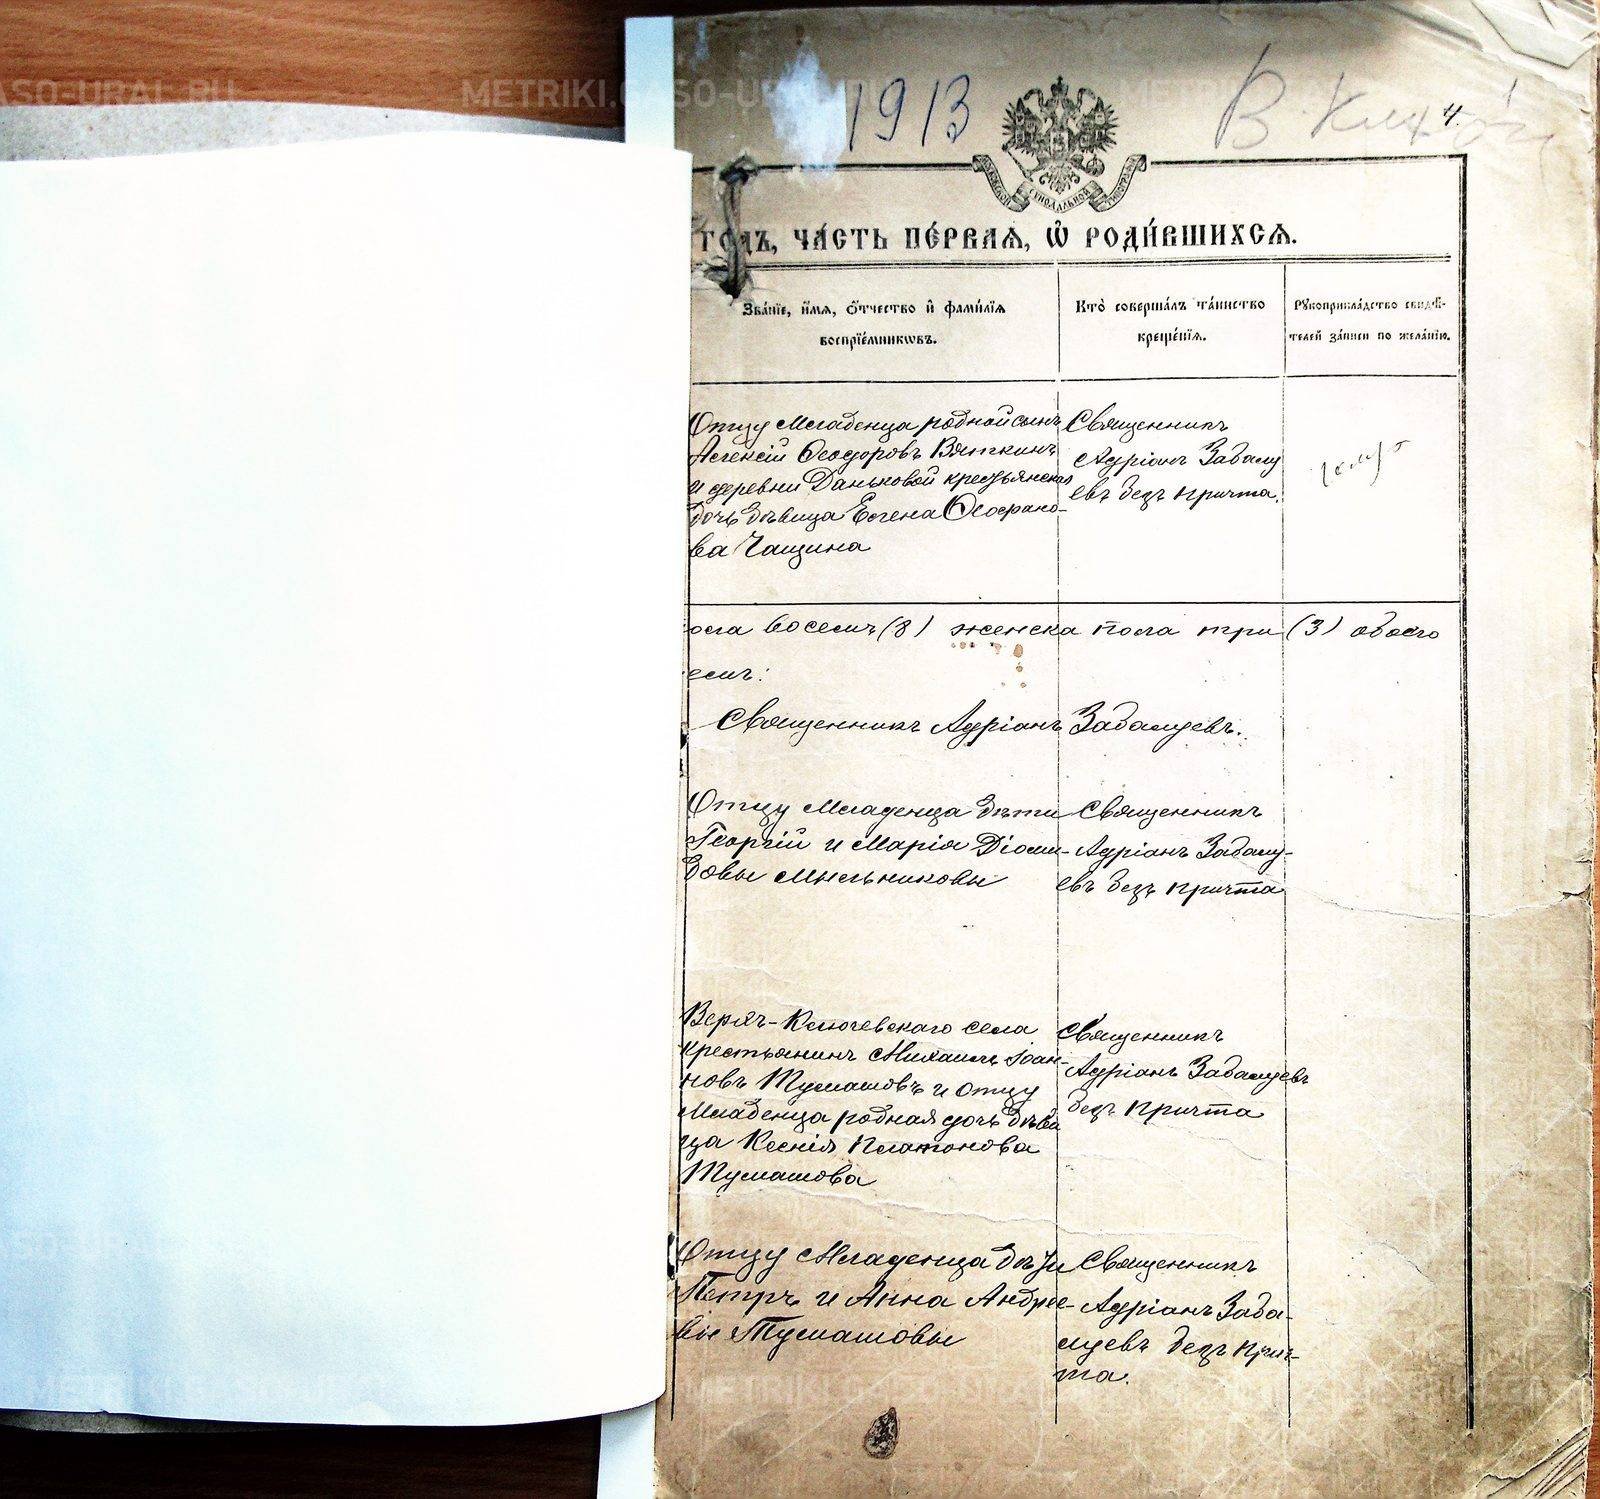 METRIKI.GASO-URAL.RU
1913
В. Ключ
4.
МОСКОВСКОЙ СѴНОДАЛЬНОЙ ТИПОГРАФІИ
го́дъ, ча́сть пе́рваѧ, ѡ҆ роди́вшихсѧ.
Зва́нїе, и҆́мѧ, ѻ҆́тчество и҆ фами́лїѧ
воспрїе́мникѡвъ.
Кто̀ соверша́лъ та́инство
креще́нїѧ.
Рꙋкоприкла́дство свидѣ́-
телей за́писи по жела́нїю.
Отцу младенца родной сынъ
Алексій Ѳеодоровъ Вяткинъ
и деревни Даньковой крестьянская
дочь дѣвица Елена
ва Чащина
Священникъ
Адріанъ Забалу
евъ безъ причта.
ола восемь (8) женска пола три (3) обоего
емъ:
Священникъ Адріанъ Забалуевъ.
Отцу младенца дѣти
Георгій и Марія Діоми-
довы Мыльниковы
Священникъ
Адріанъ Забалу-
евъ безъ причта
Верхъ-Ключевскаго села
крестьянинъ Михаилъ Іоан-
новъ Тумашовъ и отцу
младенца родная дочь дѣви
ца Ксенія Платонова
Тумашова
Священникъ
Адріанъ Забалуевъ
безъ причта
Отцу младенца дѣти
Петръ и Анна Андрее-
вы Тумашовы
Священникъ
Адріанъ Заба-
луевъ безъ прич-
та.